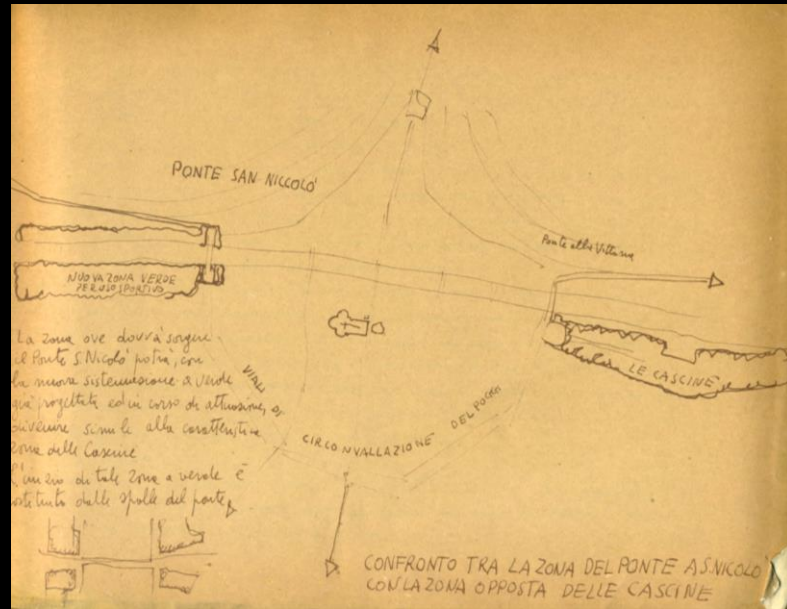 PONTE SAN NICCOLO'
Ponte alla Vittoria
NUOVA ZONA VERDE
PER USO SPORTIVO
LE CASCINE
VIALI DI CIRCONVALLAZIONE DEL POGGI
La zona ove dovrà sorgere
il Ponte S. Nicolò potrà, con
la nuova sistemazione a verde
già progettata ed in corso di attuazione,
divenire simile alla caratteristica
zona delle Cascine
di tale zona a verde è
dalle spalle del ponte
CONFRONTO TRA LA ZONA DEL PONTE A S. NICOLO'
CON LA ZONA OPPOSTA DELLE CASCINE